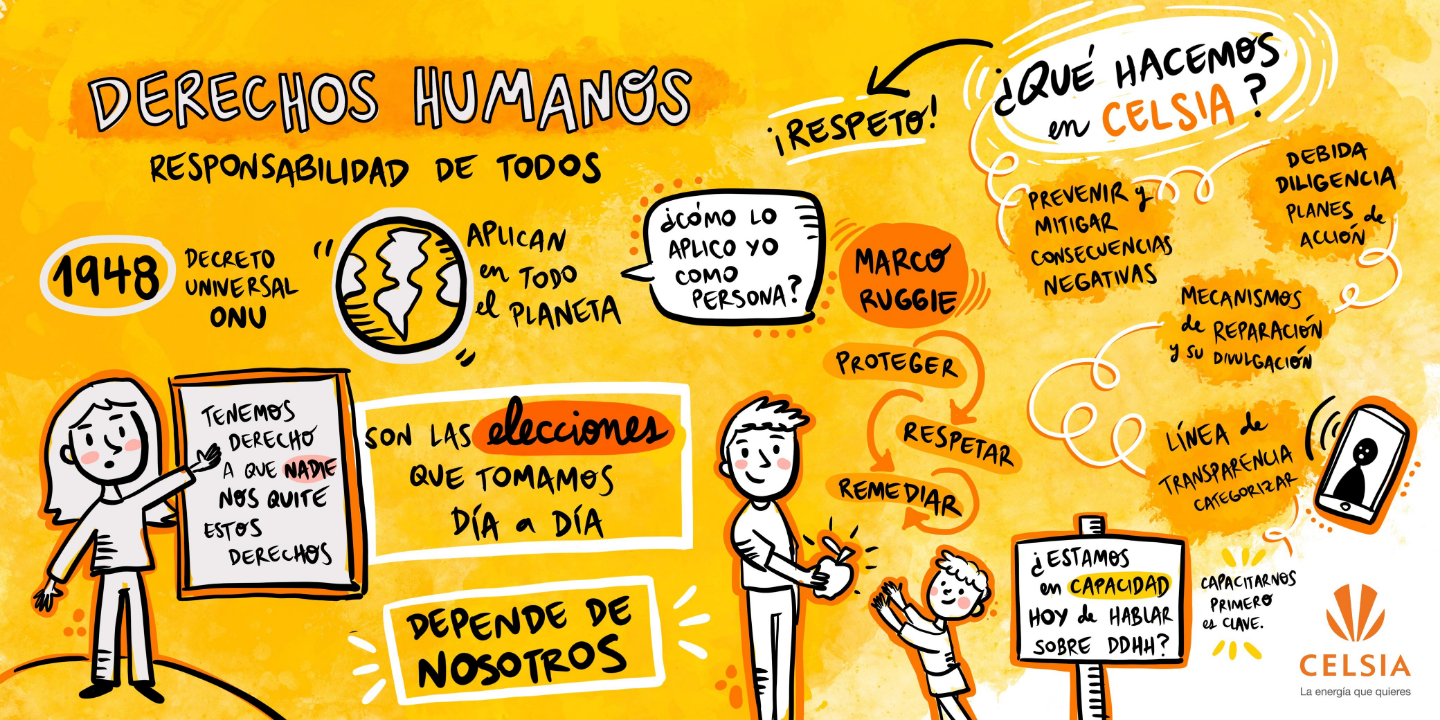 DERECHOS HUMANOS
RESPONSABILIDAD DE TODOS
1948
DECRETO
UNIVERSAL
ONU
APLICAN
en TODO
el PLANETA
¿CÓMO LO
APLICO YO
COMO
PERSONA?
TENEMOS
DERECHO
A QUE NADIE
NOS QUITE
ESTOS
DERECHOS
SON LAS elecciones
QUE TOMAMOS
DÍA a DÍA
DEPENDE DE
NOSOTROS
MARCO
RUGGIE
PROTEGER
RESPETAR
REMEDIAR
¿QUÉ HACEMOS
en CELSIA?
¡RESPETO!
PREVENIR y
MITIGAR
CONSECUENCIAS
NEGATIVAS
DEBIDA
DILIGENCIA
PLANES de
ACCIÓN
MECANISMOS
de REPARACIÓN
y SU DIVULGACIÓN
LÍNEA de
TRANSPARENCIA
CATEGORIZAR
¿ESTAMOS
en CAPACIDAD
HOY de HABLAR
SOBRE DDHH?
CAPACITARNOS
PRIMERO
es CLAVE.
CELSIA
La energía que quieres